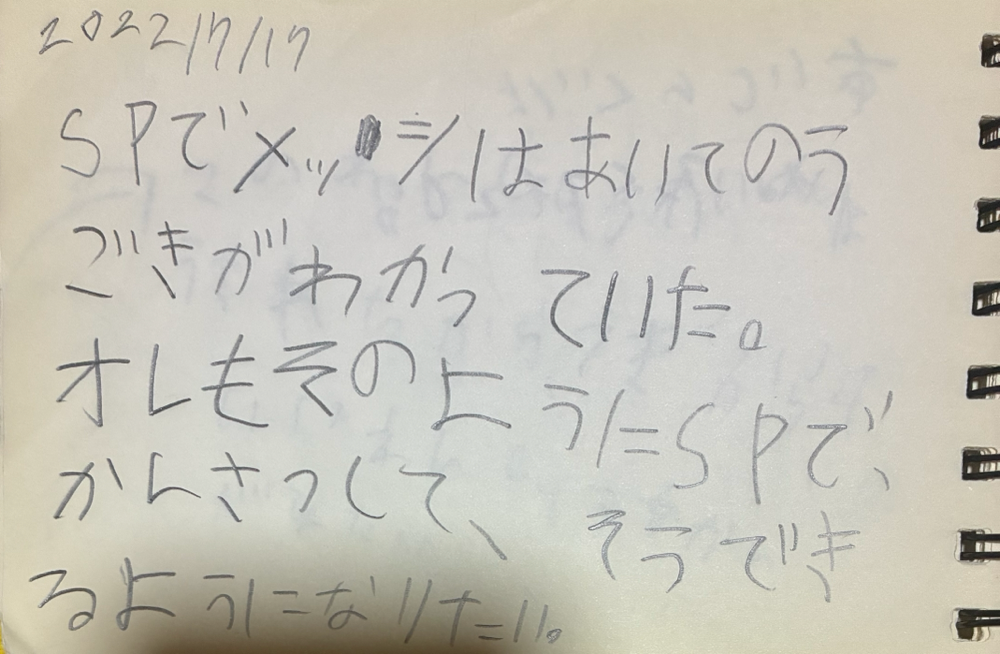 2022/7/17
SPでメッシはあいてのう
ごきがわかっていた。
オレもそのようにSPで、
かんさつして、そうでき
るようになりたい。